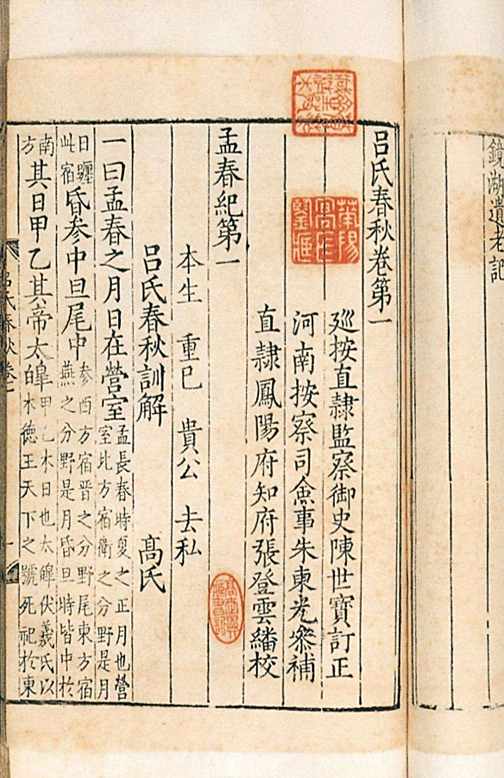 鏡湖遺老記
呂氏春秋卷第一
巡按直隸監察御史陳世寶訂正
河南按察司僉事朱東光叅補
直隸鳳陽府知府張登雲繙校
孟春紀第一
本生 重已 貴公 去私
呂氏春秋訓解 高氏
一曰孟春之月日在營室孟長春時夏之正月也營室北方宿衞之分野是月
日躔此宿昏参中旦尾中参西方宿晉之分野尾東方宿燕之分野是月昏旦時皆中於
南方其日甲乙其帝太皥甲乙木日也太皥伏羲氏以木德王天下之號死祀於東
呂氏春秋卷一